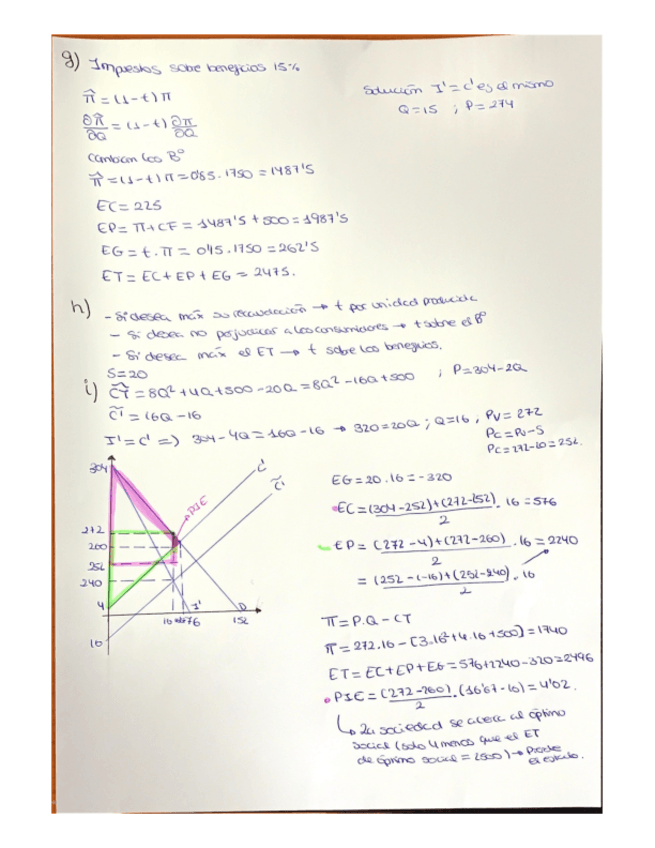 g) Impuestos sobre beneficios 15%
π̂ = (1-t)π
∂π̂/∂Q = (1-t) ∂π/∂Q
Cambian los Bº
π̂ = (1-t)π = 0'85·1750 = 1487'5
EC = 225
EP = π + CF = 1487'5 + 500 = 1987'5
EG = t·π = 0'15·1750 = 262'5
ET = EC + EP + EG = 2475.
Solución I' = C' es el mismo
Q = 15 ; P = 274
h) - Si desea máx su recaudación → t por unidad producida
- Si desea no perjudicar a los consumidores → t sobre el Bº
- Si desea máx el ET → t sobre los beneficios.
S = 20
i) CT = 8Q² + 4Q + 500 - 20Q = 8Q² - 16Q + 500 ; P = 304 - 2Q
C' = 16Q - 16
I' = C' => 304 - 4Q = 16Q - 16 → 320 = 20Q ; Q = 16 , Pv = 272
Pc = Pv - S
Pc = 272 - 20 = 252.
304
272
260
252
240
4
C'
C̃'
PIE
I'
D
16
76
152
EG = 20·16 = -320
EC = (304-252)+(272-252)/2 · 16 = 576
EP = (272-4)+(272-260)/2 · 16 = 2240
= (252-(-16)+(252-240)/2 · 16
π = P·Q - CT
π = 272·16 - [3·16² + 4·16 + 500] = 1740
ET = EC + EP + EG = 576 + 2240 - 320 = 2496
PIE = (272-260)/2 · (16'67-16) = 4'02.
La sociedad se acerca al óptimo
social (solo 4 menos que el ET
de óptimo social = 2500) → Pierde
el estado.